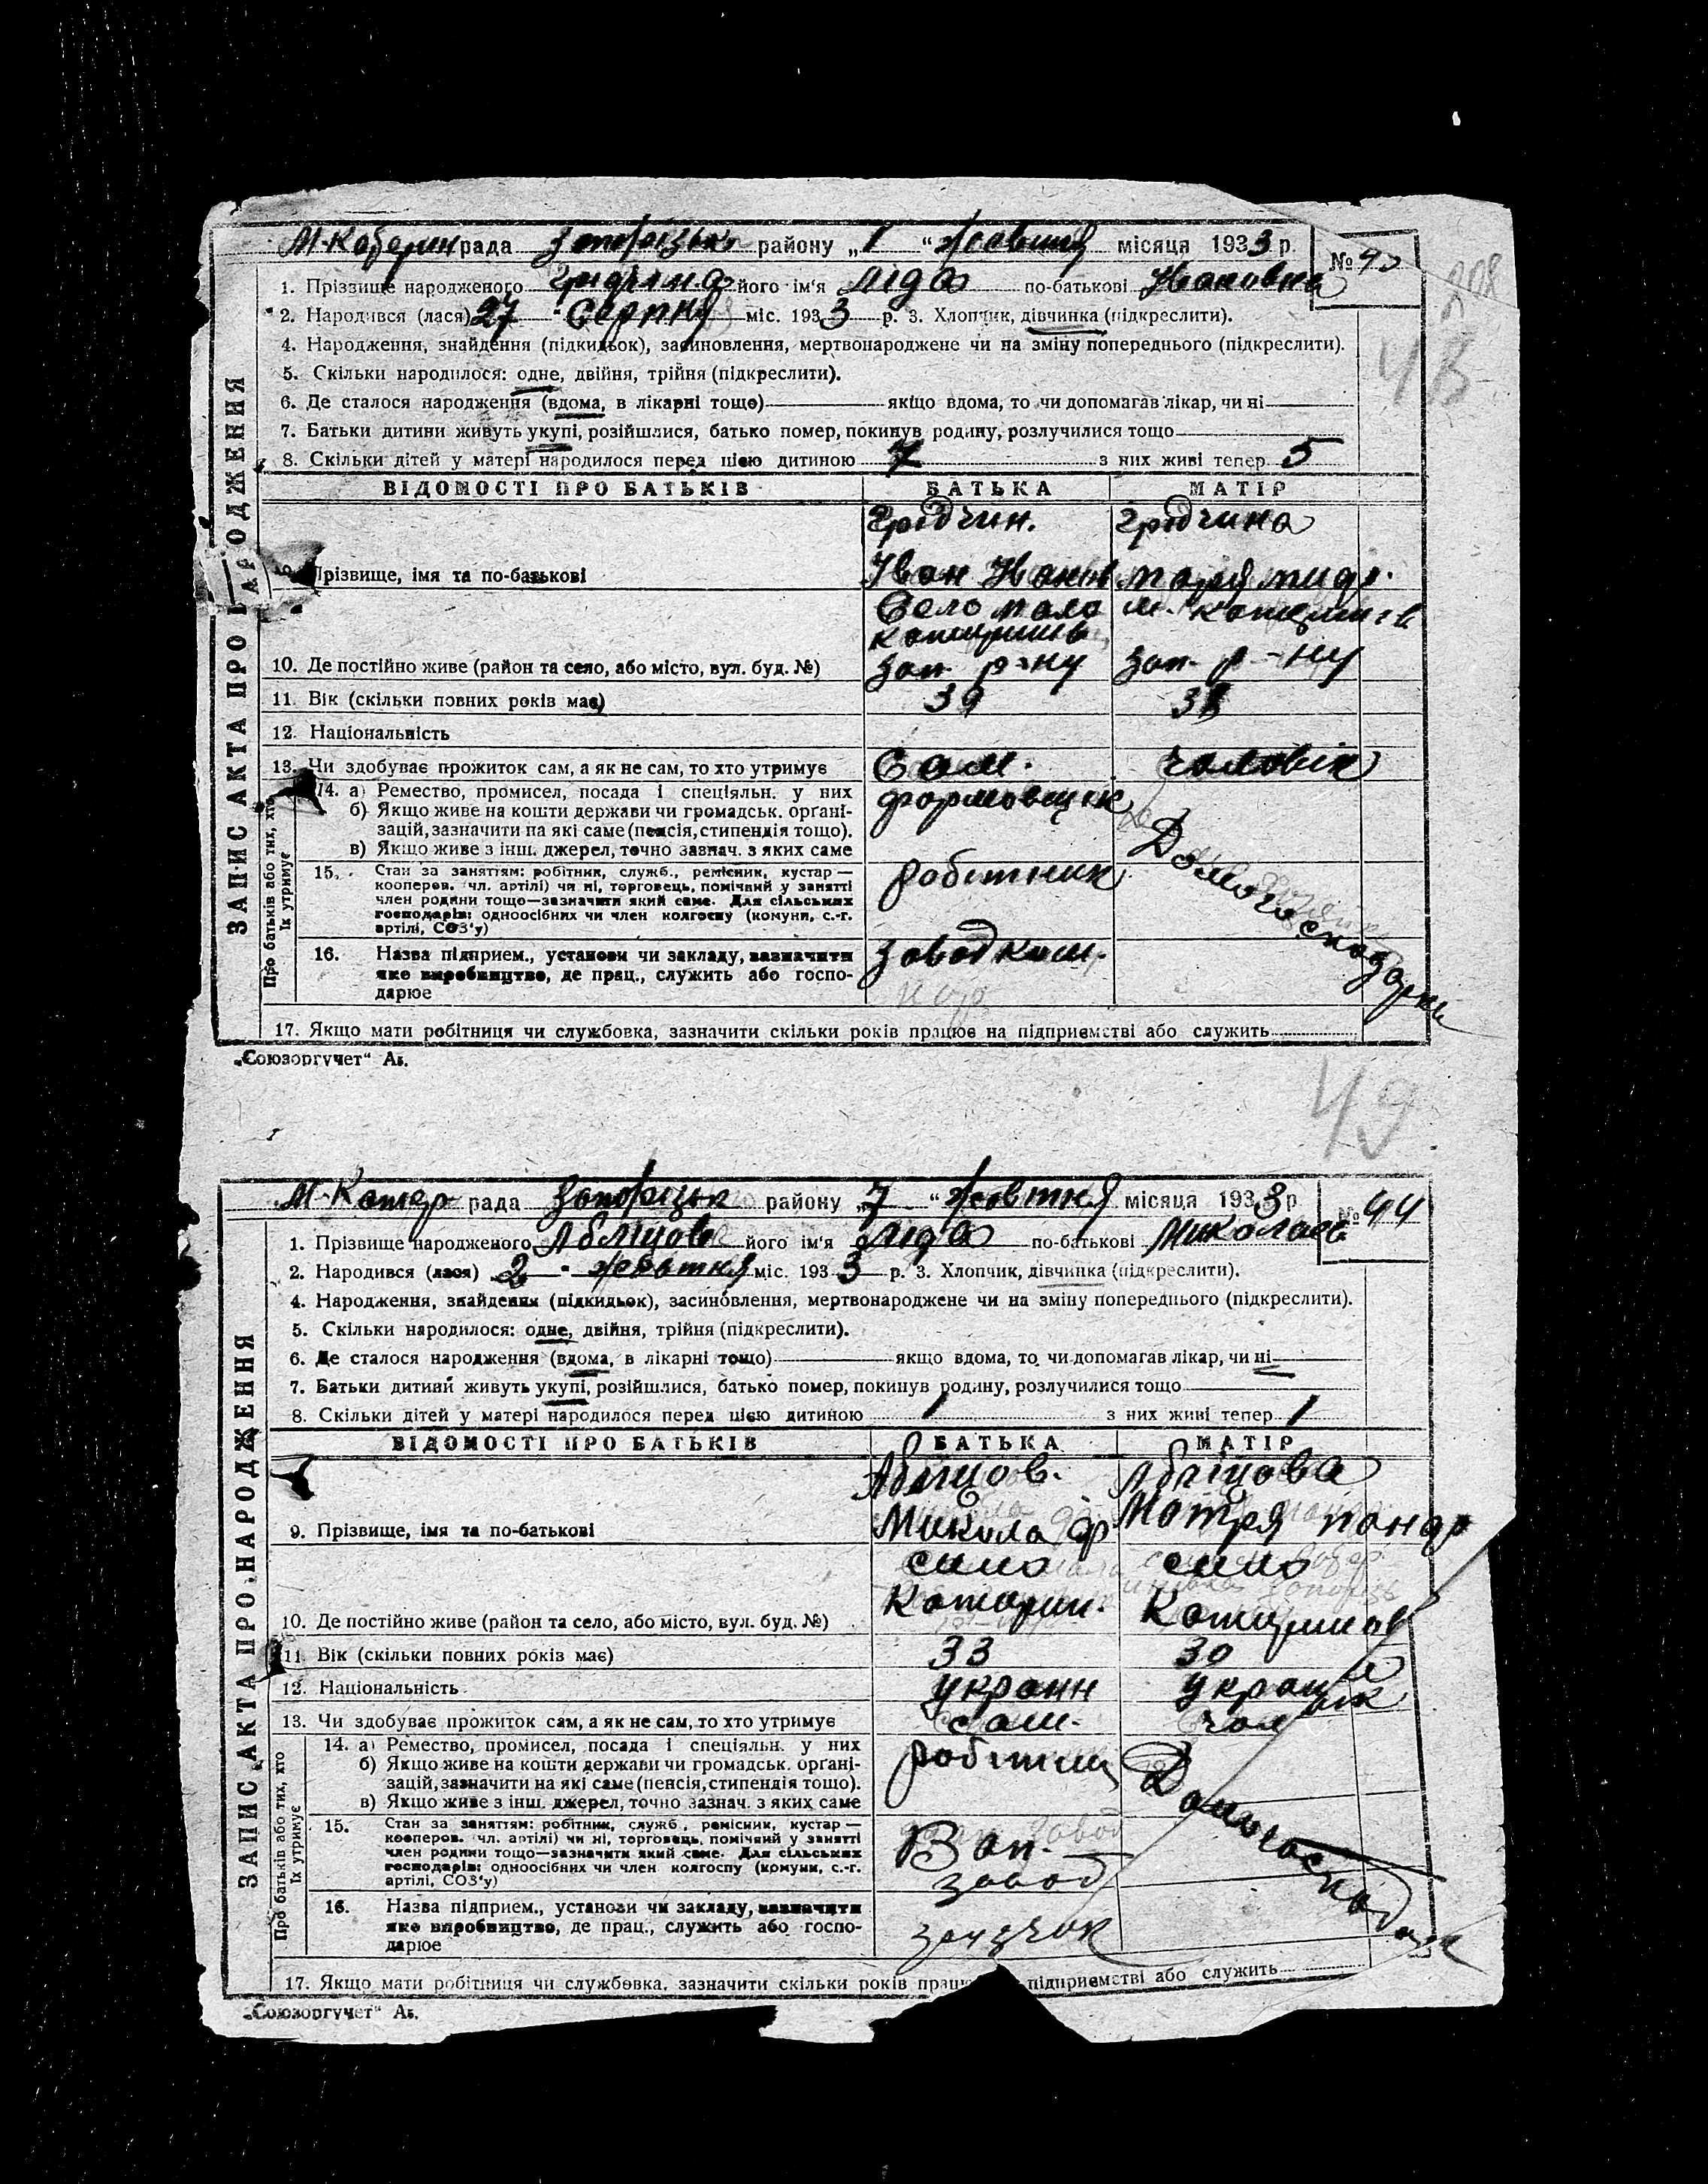 М-Катерин рада Запорізьк району „1“ жовтня місяця 1933 р. № 43
1. Прізвище народженого Грідчина його ім'я Ліда по-батькові Ивановна
2. Народився (лася) 27 Серпня міс. 1933 р. 3. Хлопчик, дівчинка (підкреслити).
4. Народження, знайдення (підкидьок), засиновлення, мертвонароджене чи на зміну попереднього (підкреслити).
5. Скільки народилося: одне, двійня, трійня (підкреслити).
6. Де сталося народження (вдома, в лікарні тощо) якщо вдома, то чи допомагав лікар, чи ні
7. Батьки дитини живуть укупі, розійшлися, батько помер, покинув родину, розлучилися тощо
8. Скільки дітей у матері народилося перед цією дитиною 7 з них живі тепер 5
ЗАПИС АКТА ПРО НАРОДЖЕННЯ
ВІДОМОСТІ ПРО БАТЬКІВ БАТЬКА МАТІР
Грідчин. Грідчина
9. Прізвище, імя та по-батькові Іван Иванов
Село мала
10. Де постійно живе (район та село, або місто, вул. буд. №) Зап. р-ну Зап. р-ну
11. Вік (скільки повних років має) 39
12. Національність
13. Чи здобуває прожиток сам, а як не сам, то хто утримує Сам. чоловік
Про батьків або тих, хто їх утримує
14. а) Ремество, промисел, посада і спеціяльн. у них формовщик
б) Якщо живе на кошти держави чи громадськ. органі-
зацій, зазначити на які саме (пенсія, стипендія тощо).
в) Якщо живе з інш. джерел, точно зазнач. з яких саме
Домогосподарка
15. Стан за заняттям: робітник, служб., ремісник, кустар— робітник
кооперов. (чл. артілі) чи ні, торговець, помічний у занятті
член родини тощо—зазначити який саме. Для сільських
господарів: одноосібних чи член колгоспу (комуни, с.-г.
артілі, СОЗ'у)
16. Назва підприєм., установи чи закладу, зазначити завод ком.
яке виробництво, де прац., служить або госпо-
дарює
17. Якщо мати робітниця чи службовка, зазначити скільки років працює на підприємстві або служить
„Союзоргучет“ Ав.
49
М-Катер рада Запорізьк району „7“ жовтня місяця 1933 р. № 44
1. Прізвище народженого Абліцова його ім'я Ліда по-батькові Миколаев
2. Народився (лася) 2 жовтня міс. 1933 р. 3. Хлопчик, дівчинка (підкреслити).
4. Народження, знайдення (підкидьок), засиновлення, мертвонароджене чи на зміну попереднього (підкреслити).
5. Скільки народилося: одне, двійня, трійня (підкреслити).
6. Де сталося народження (вдома, в лікарні тощо) якщо вдома, то чи допомагав лікар, чи ні
7. Батьки дитини живуть укупі, розійшлися, батько помер, покинув родину, розлучилися тощо
8. Скільки дітей у матері народилося перед цією дитиною 1 з них живі тепер 1
ЗАПИС АКТА ПРО НАРОДЖЕННЯ
ВІДОМОСТІ ПРО БАТЬКІВ БАТЬКА МАТІР
Абліцов. Абліцова
9. Прізвище, імя та по-батькові Микола Ф Мотря
село село
10. Де постійно живе (район та село, або місто, вул. буд. №) Катерин.
11. Вік (скільки повних років має) 33 30
12. Національність украин
13. Чи здобуває прожиток сам, а як не сам, то хто утримує сам. чол
Про батьків або тих, хто їх утримує
14. а) Ремество, промисел, посада і спеціяльн. у них
б) Якщо живе на кошти держави чи громадськ. органі-
зацій, зазначити на які саме (пенсія, стипендія тощо).
в) Якщо живе з інш. джерел, точно зазнач. з яких саме
Домогосподарка
15. Стан за заняттям: робітник, служб., ремісник, кустар—
кооперов. (чл. артілі) чи ні, торговець, помічний у занятті
член родини тощо—зазначити який саме. Для сільських
господарів: одноосібних чи член колгоспу (комуни, с.-г.
артілі, СОЗ'у)
завод
16. Назва підприєм., установи чи закладу, зазначити
яке виробництво, де прац., служить або госпо-
дарює
17. Якщо мати робітниця чи службовка, зазначити скільки років прац підприємстві або служить
„Союзоргучет“ Ав.